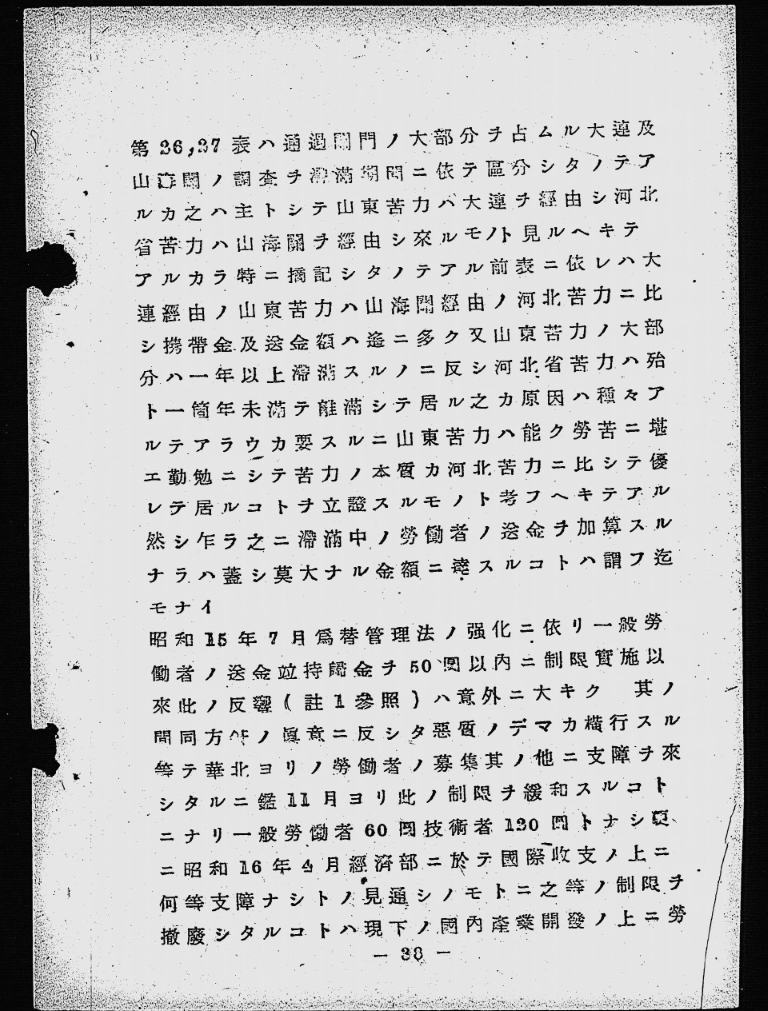 第26,27表ハ通過關門ノ大部分ヲ占ムル大連及
山海關ノ調査ヲ滯滿期間ニ依テ區分シタノテア
ルカ之ハ主トシテ山東苦力ハ大連ヲ經由シ河北
省苦力ハ山海關ヲ經由シ來ルモノト見ルヘキテ
アルカラ特ニ摘記シタノテアル前表ニ依レハ大
連經由ノ山東苦力ハ山海關經由ノ河北苦力ニ比
シ携帶金及送金額ハ遙ニ多ク又山東苦力ノ大部
分ハ一年以上滯滿スルノニ反シ河北省苦力ハ殆
ト一箇年未滿テ離滿シテ居ル之カ原因ハ種々ア
ルテアラウカ要スルニ山東苦力ハ能ク勞苦ニ堪
エ勤勉ニシテ苦力ノ本質カ河北苦力ニ比シテ優
レテ居ルコトヲ立證スルモノト考フヘキテアル
然シ乍ラ之ニ滯滿中ノ勞働者ノ送金ヲ加算スル
ナラハ蓋シ莫大ナル金額ニ達スルコトハ謂フ迄
モナイ
昭和15年7月爲替管理法ノ强化ニ依リ一般勞
働者ノ送金竝持歸金ヲ50圓以內ニ制限實施以
來此ノ反響(註1參照)ハ意外ニ大キク 其ノ
間同方ノ眞意ニ反シタ惡質ノデマカ橫行スル
等テ華北ヨリノ勞働者ノ募集其ノ他ニ支障ヲ來
シタルニ鑑11月ヨリ此ノ制限ヲ緩和スルコト
ニナリ一般勞働者60圓技術者120圓トナシ更
ニ昭和16年4月經濟部ニ於テ國際收支ノ上ニ
何等支障ナシトノ見通シノモトニ之等ノ制限ヲ
撤廢シタルコトハ現下ノ國內產業開發ノ上ニ勞
— 38 —